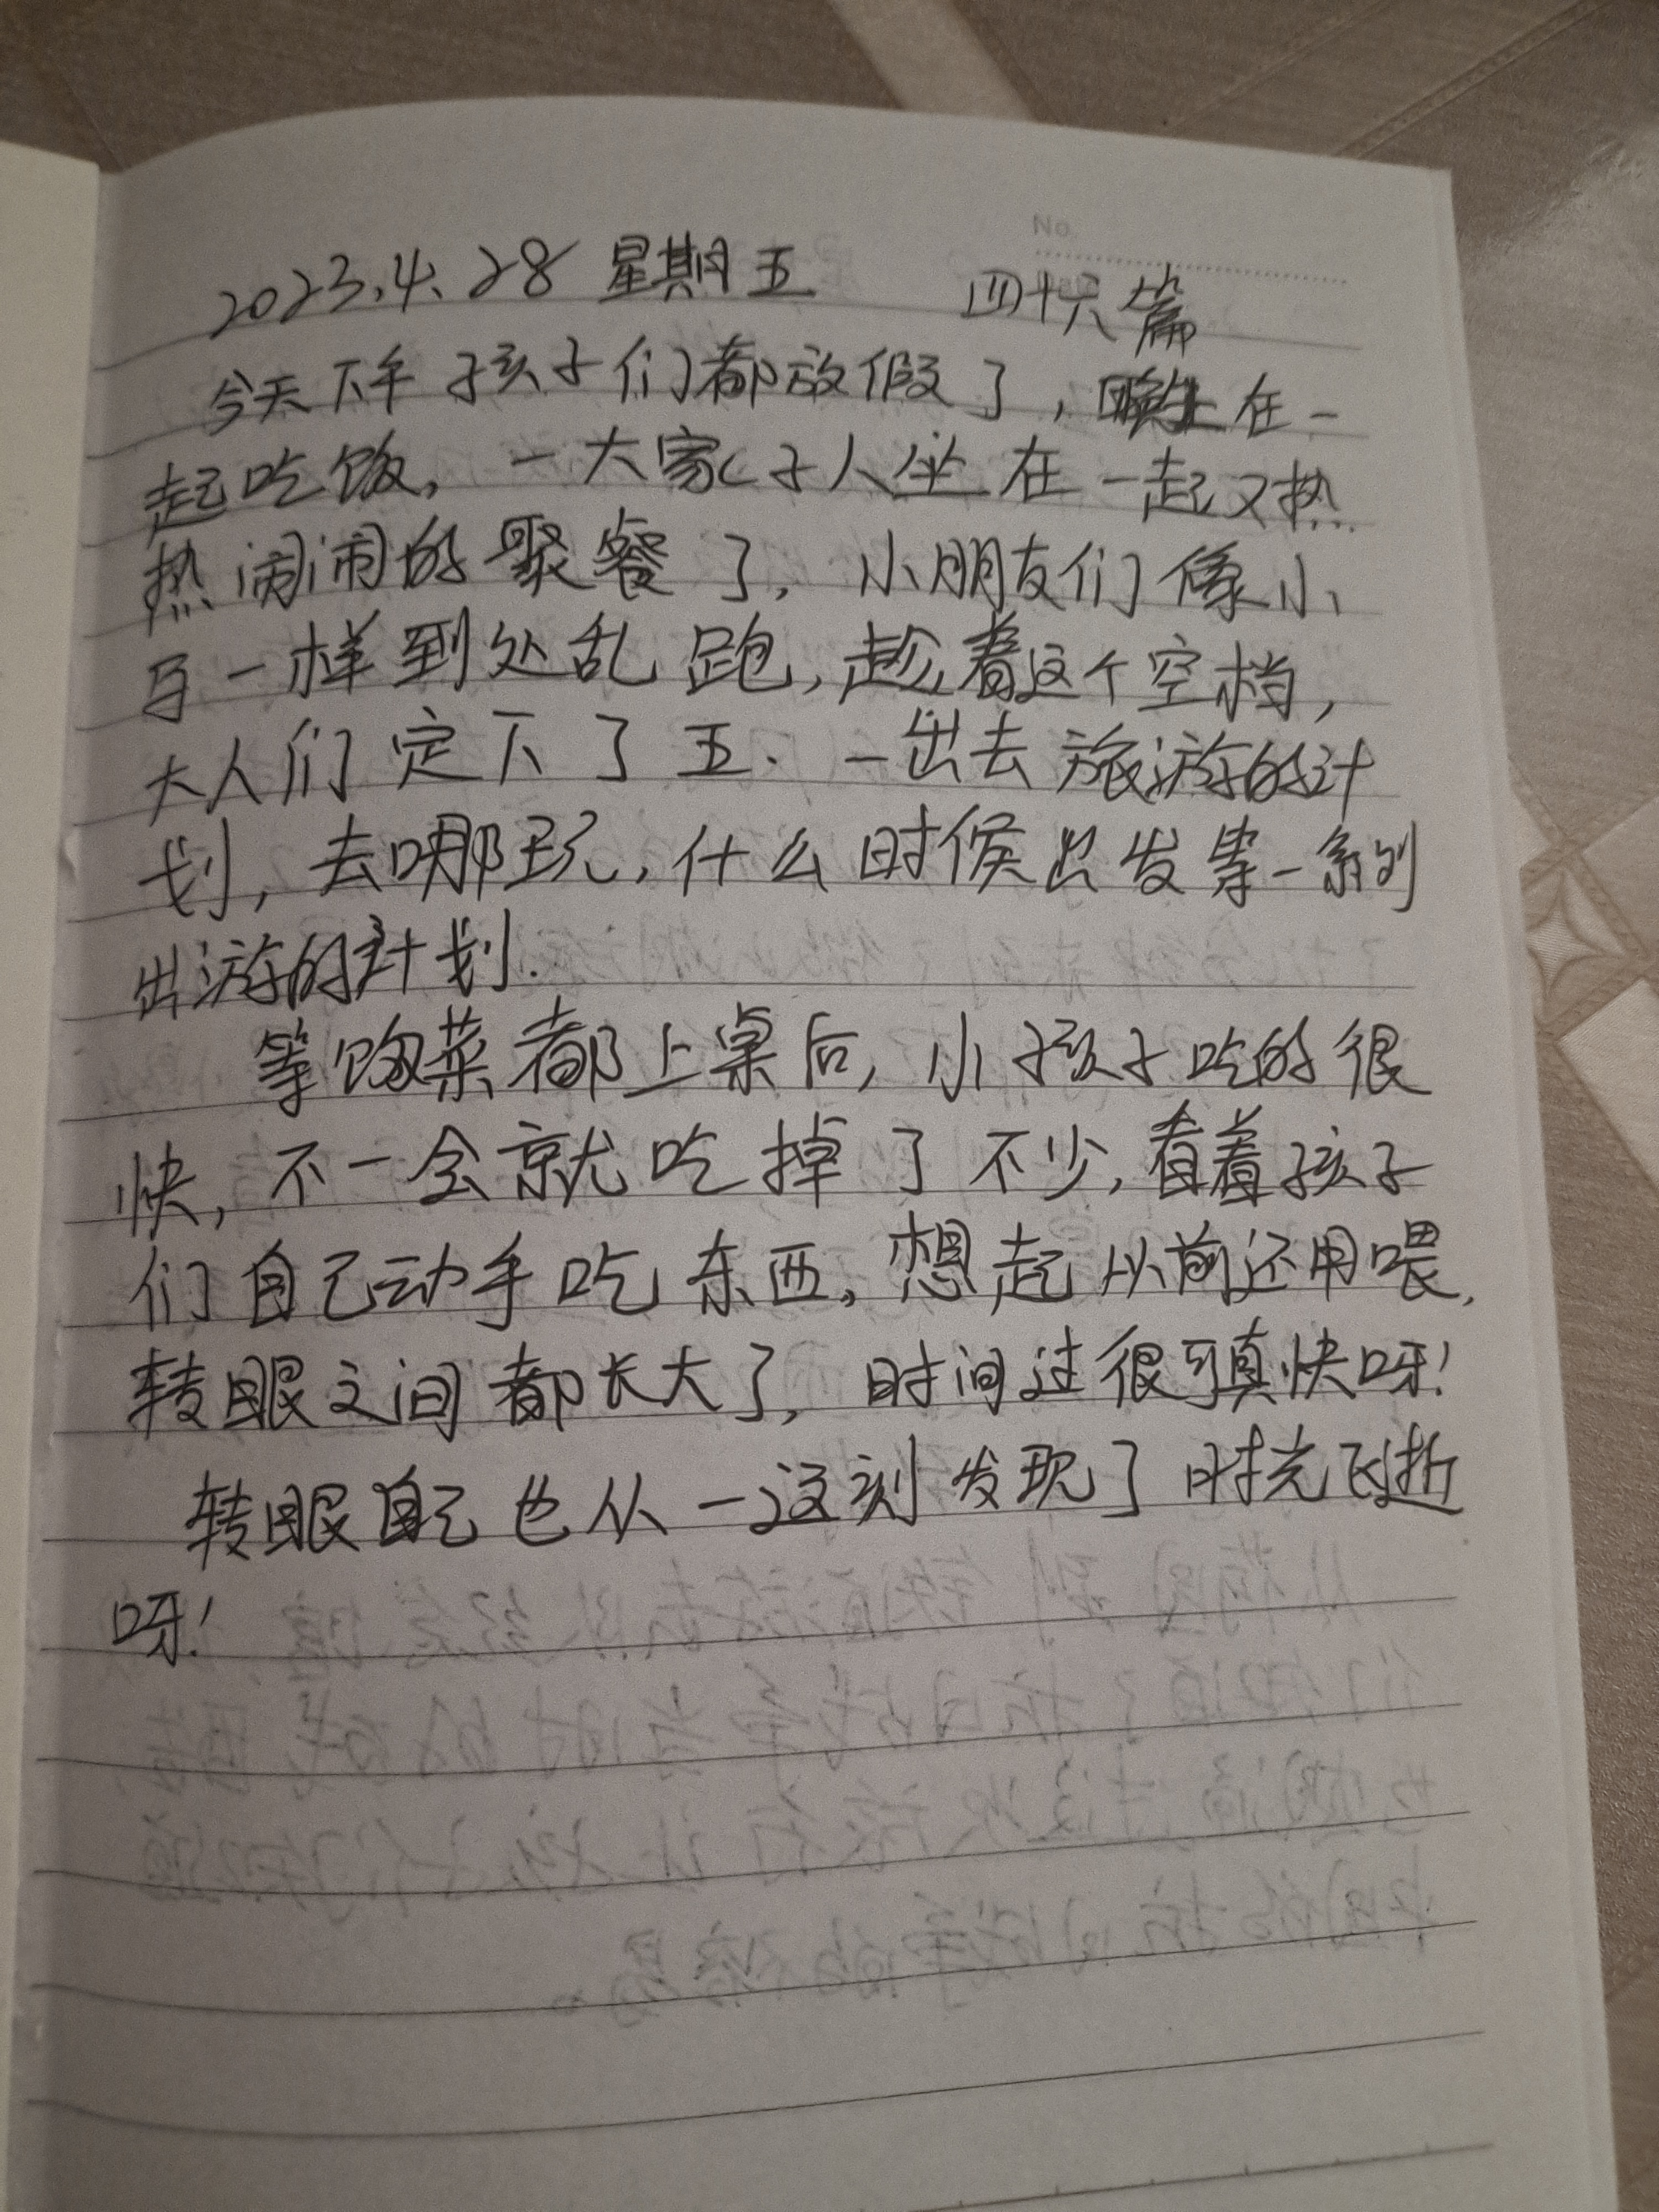 No.
2023.4.28 星期五 四十六篇
今天下午孩子们都放假了,晚上在一
起吃饭,一大家子人坐在一起又热
热闹闹的聚餐了,小朋友们像小
马一样到处乱跑,趁着这个空档,
大人们定下了五、一出去旅游的计
划,去哪玩,什么时候出发等一系列
出游的计划.
等饭菜都上桌后,小孩子吃的很
快,不一会就吃掉了不少,看着孩子
们自己动手吃东西,想起以前还用喂,
转眼之间都长大了,时间过很可真快呀!
转眼自己也从一这刻发现了时光飞逝
呀!